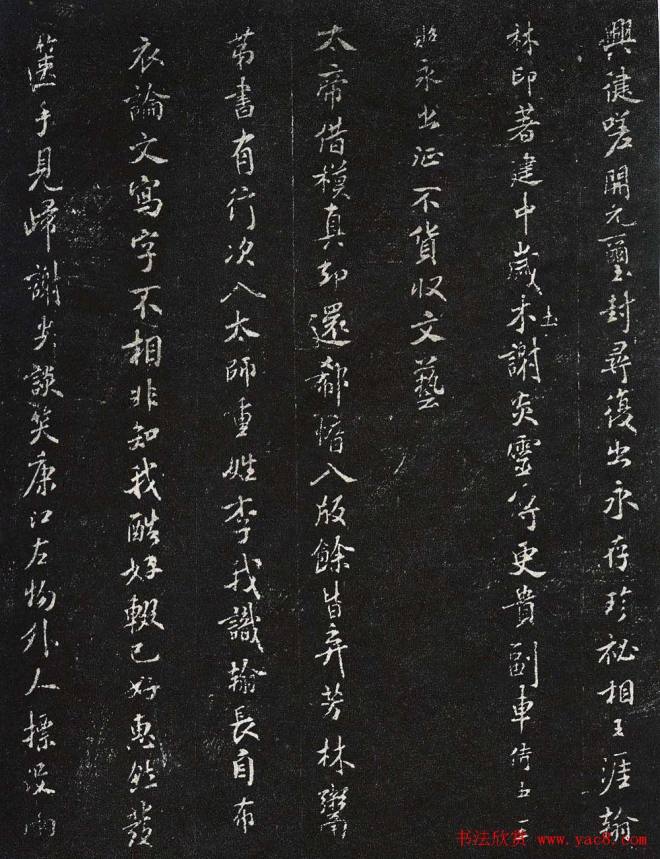 興健嗟開元璽封尋復出永存珍祕相王涯翰
林印著建中歲木土謝炎靈得更貴副車侍五
永出征不貨收文藝
太帝借模真却還郗愔八版餘皆弃芳林鬻
第書有行次八太師重姓李我識翰長自布
衣論文寫字不相非知我酷好輟己好惠然發
篋手見歸謝尚談笑康江左物外人標
书法欣赏 www.yac8.com